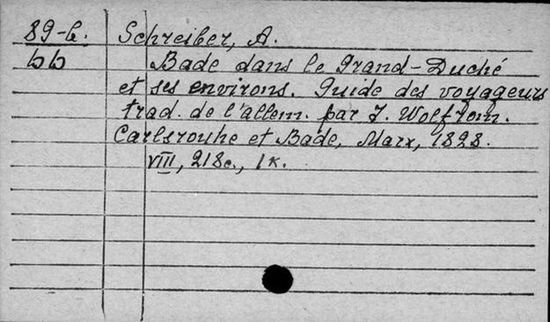 89-6. Schreiber, A.
bb Bade dans le Grand-Duché
et ses environs. Guide des voyageurs
trad. de l'allem. par J. Wolfrom.
Carlsrouhe et Bade, Marx, 1828.
VIII, 218c., 1к.